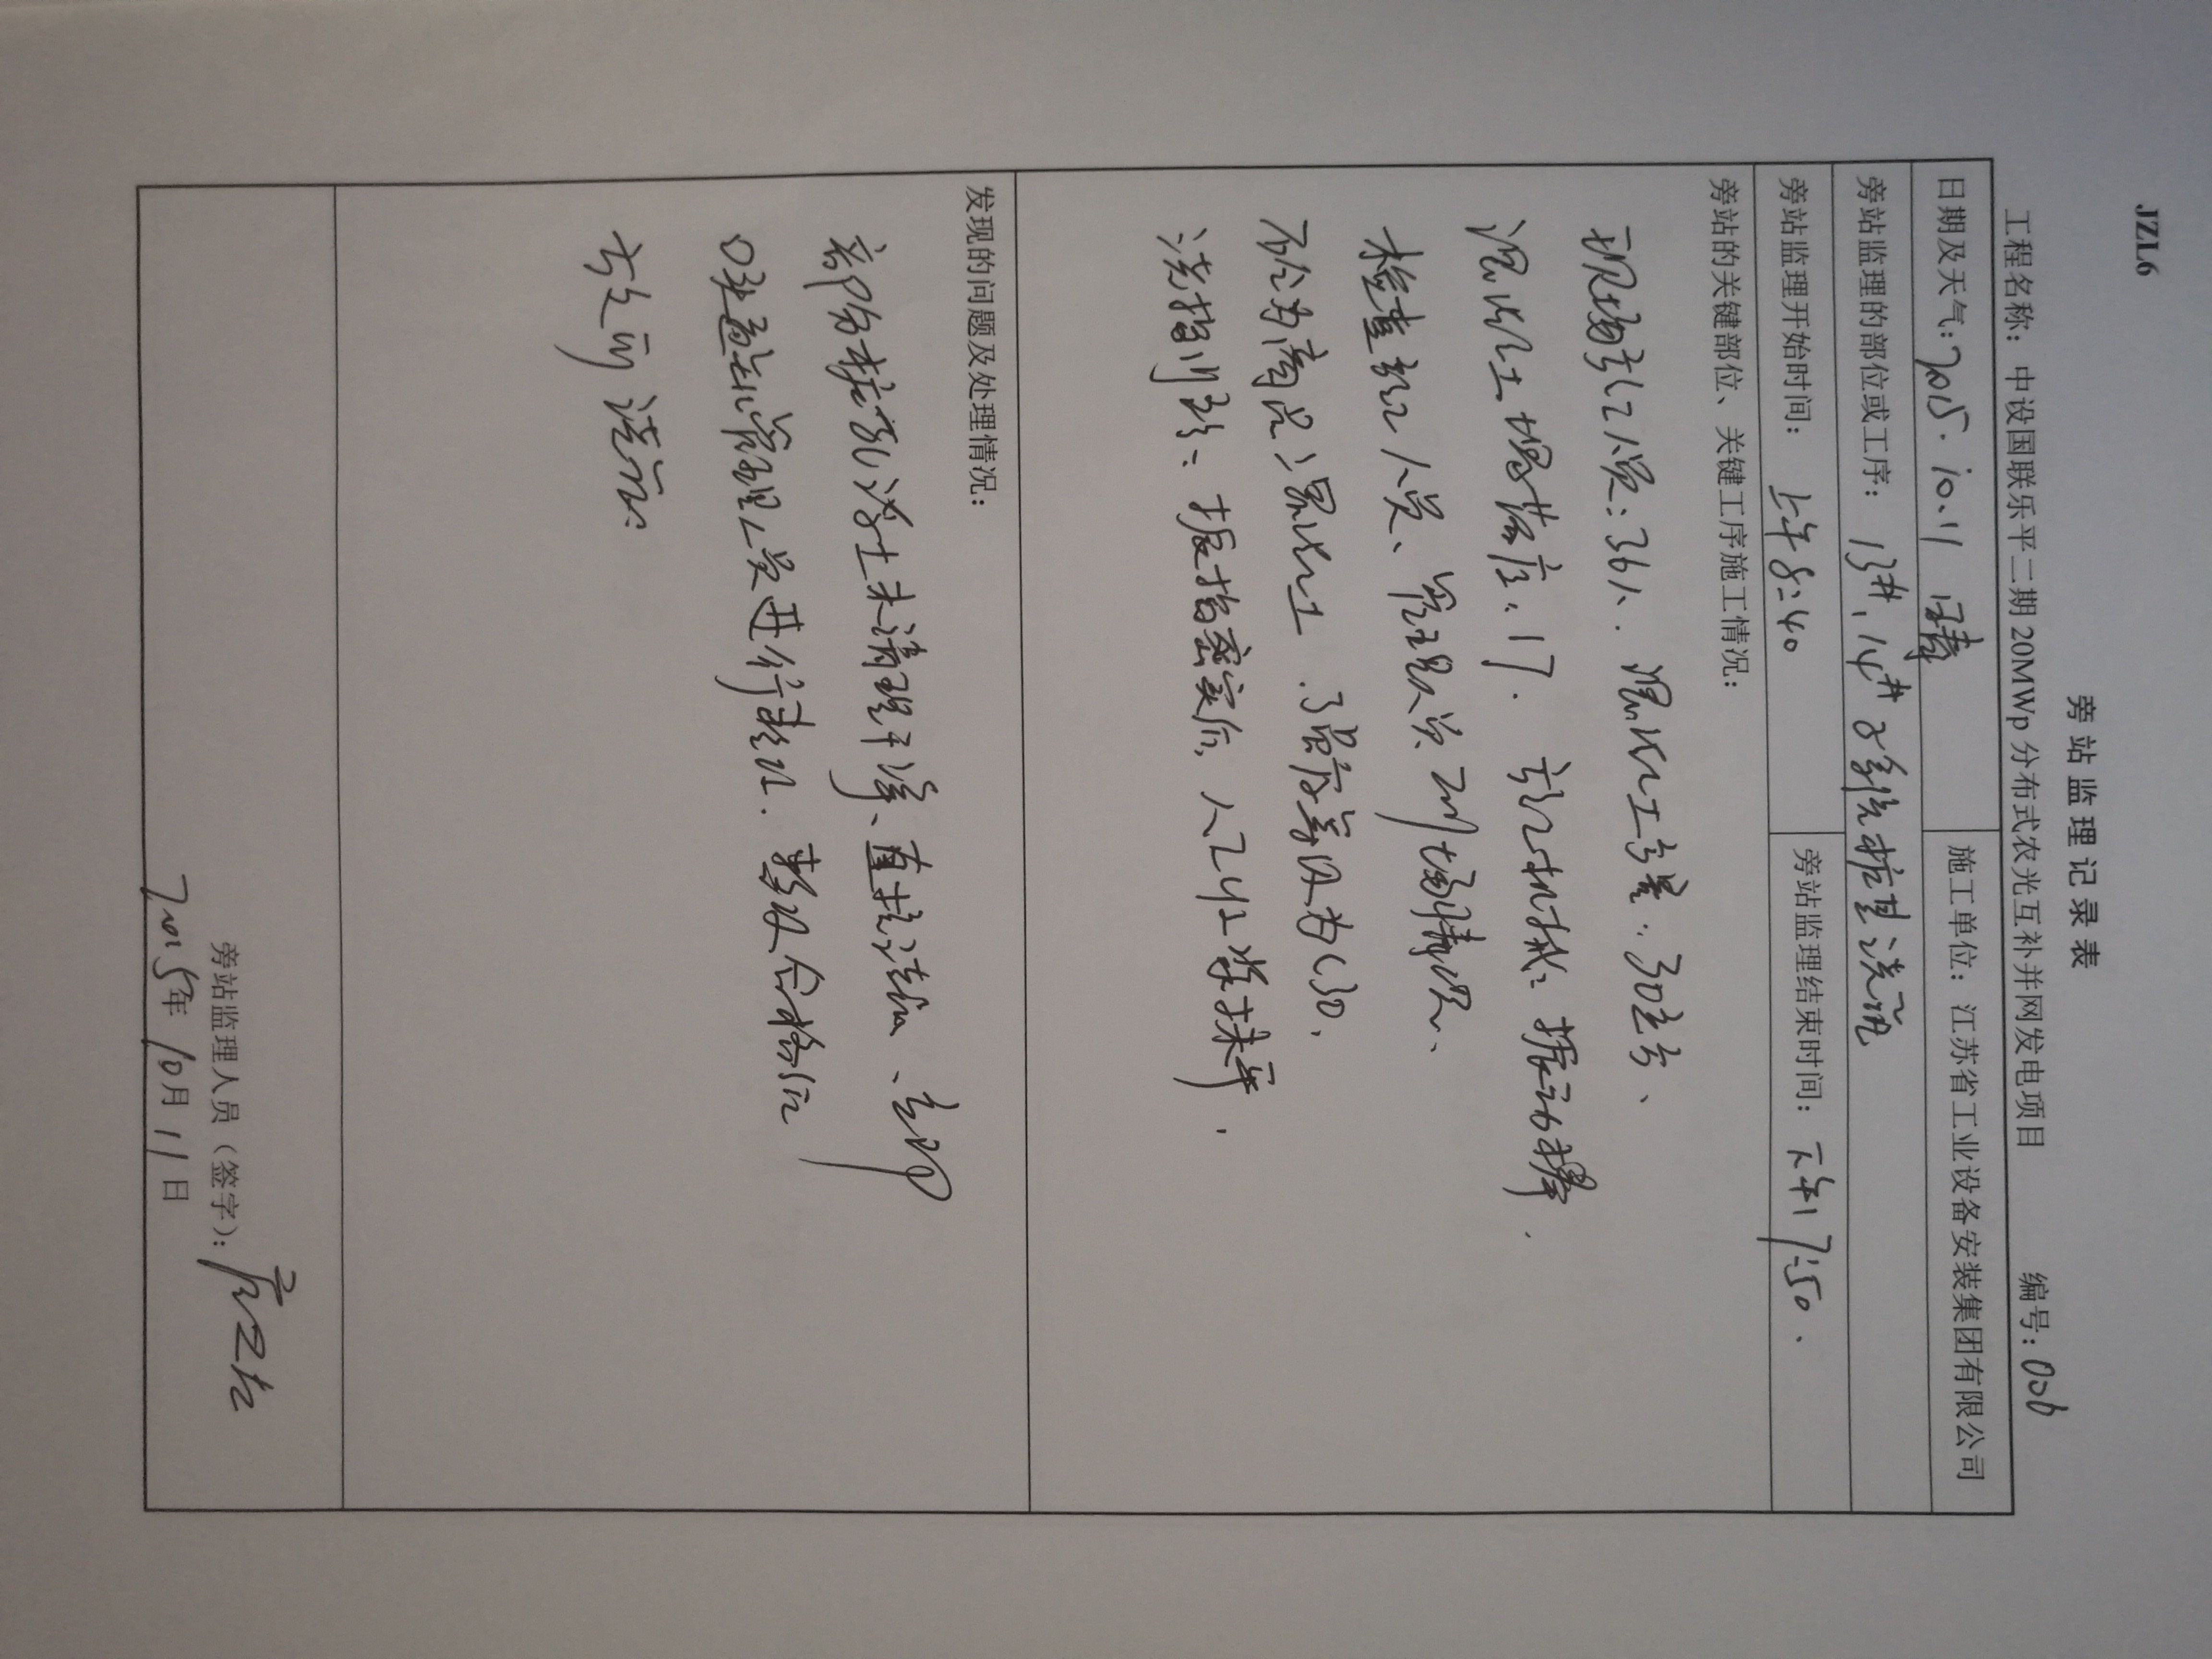 JZL6
旁站监理记录表
工程名称：中设国联乐平二期20MWp分布式农光互补并网发电项目 编号：006
日期及天气：2015.10.11 晴 施工单位：江苏省工业设备安装集团有限公司
旁站监理的部位或工序：13#、14#子系统桩基浇筑
旁站监理开始时间：上午8:40 旁站监理结束时间：下午17:50、
旁站的关键部位、关键工序施工情况：
现场施工人员：36人. 混凝土方量：30立方、
混凝土塌落度：17. 施工机械：振动棒.
检查施工人员、管理人员到场情况、
砼为商品混凝土.强度等级为C30、
浇捣到位：振捣密实后，人工收浆抹平.
发现的问题及处理情况：
部分桩孔浮土未清理干净、直接浇筑、立即
口头通知管理人员进行整改.整改合格后
方可浇筑.
旁站监理人员（签字）：
2015年10月11日